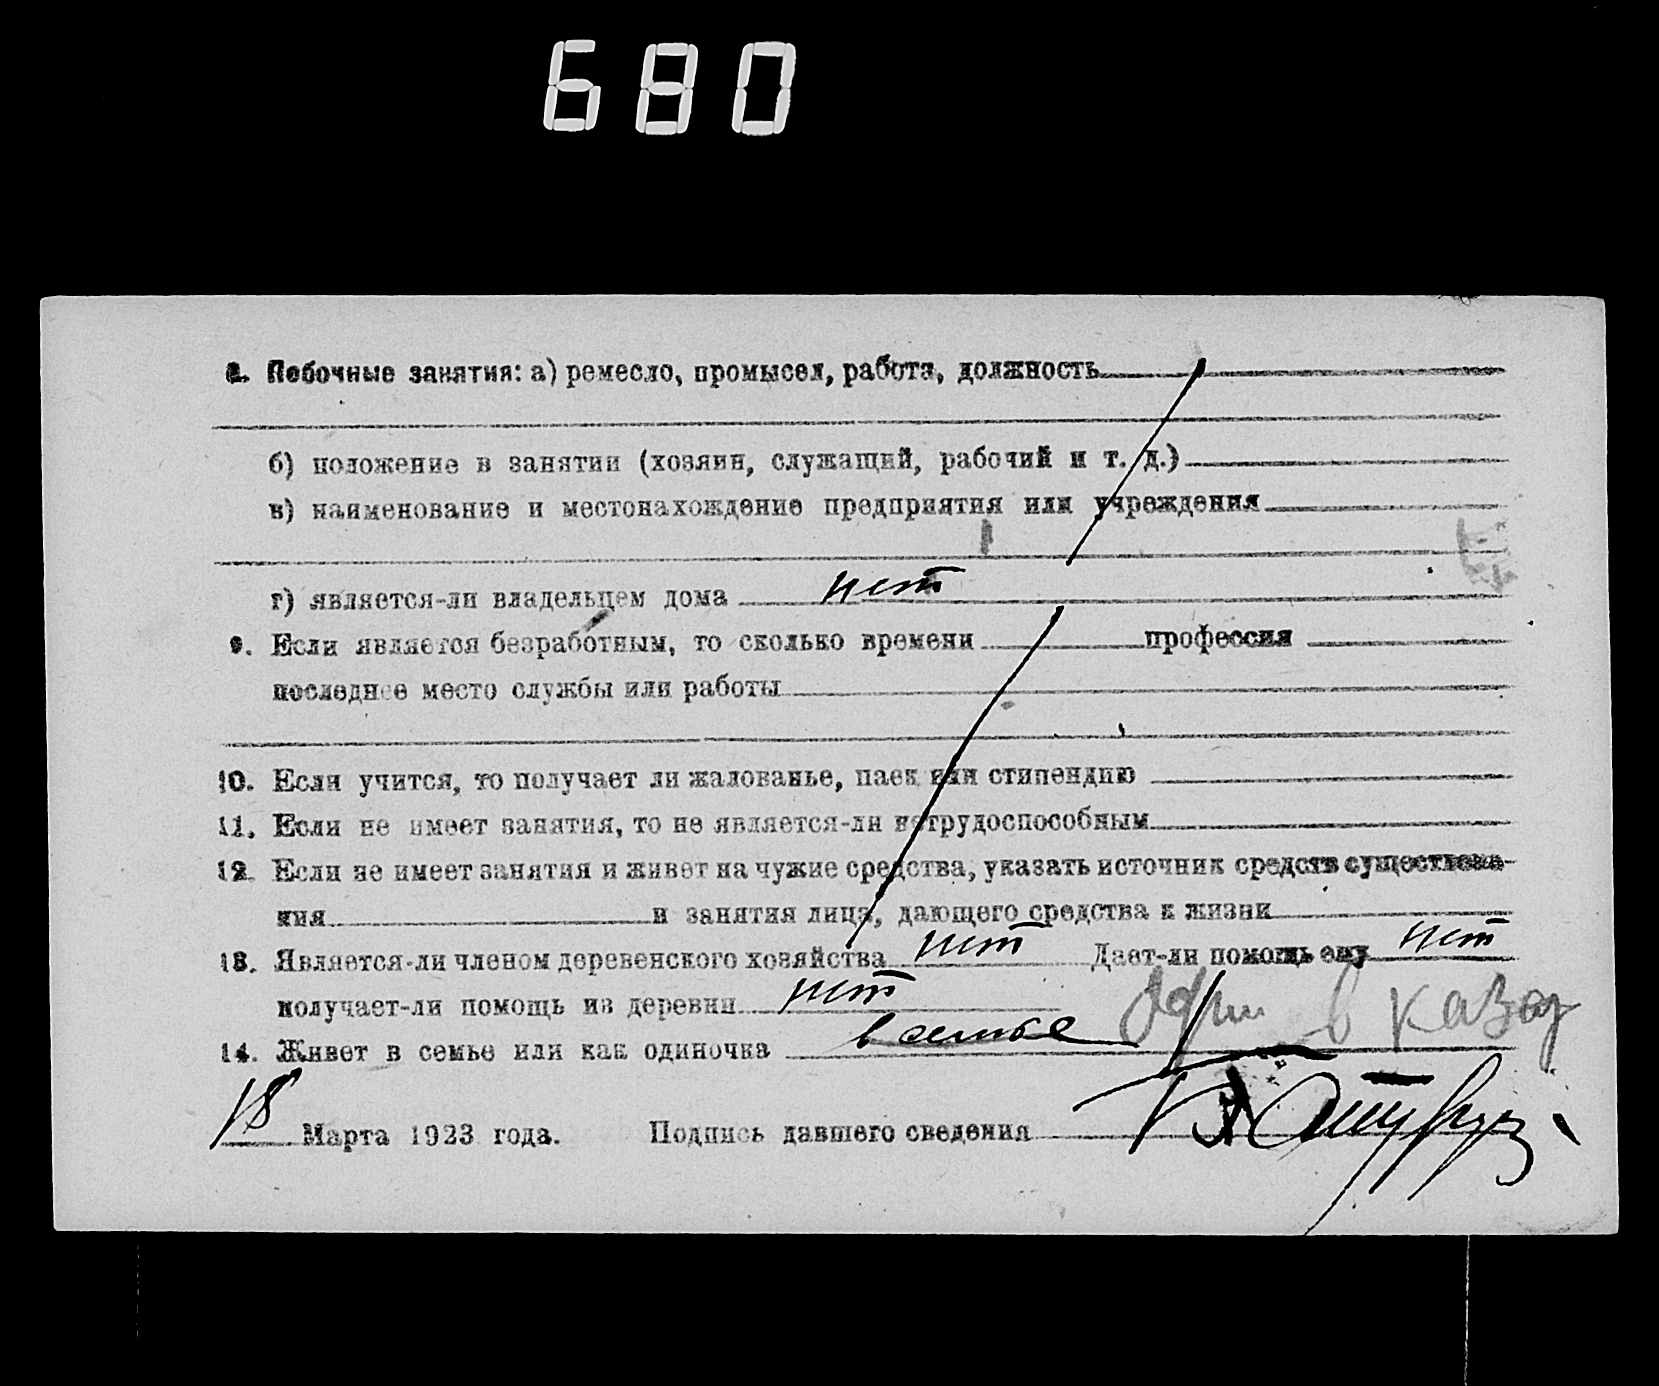 680
8. Побочные занятия: а) ремесло, промысел, работа, должность
б) положение в занятии (хозяин, служащий, рабочий и т. д.)
в) наименование и местонахождение предприятия или учреждения
г) является-ли владельцем дома нет
9. Если является безработным, то сколько времени профессия
последнее место службы или работы
10. Если учится, то получает ли жалованье, паек или стипендию
11. Если не имеет занятия, то не является-ли нетрудоспособным
12. Если не имеет занятия и живет на чужие средства, указать источник средств существова-
ния и занятия лица, дающего средства к жизни
13. Является-ли членом деревенского хозяйства нет Дает-ли помощь ему нет
получает-ли помощь из деревни нет
14. Живет в семье или как одиночка в семье
18 Марта 1923 года. Подпись давшего сведения